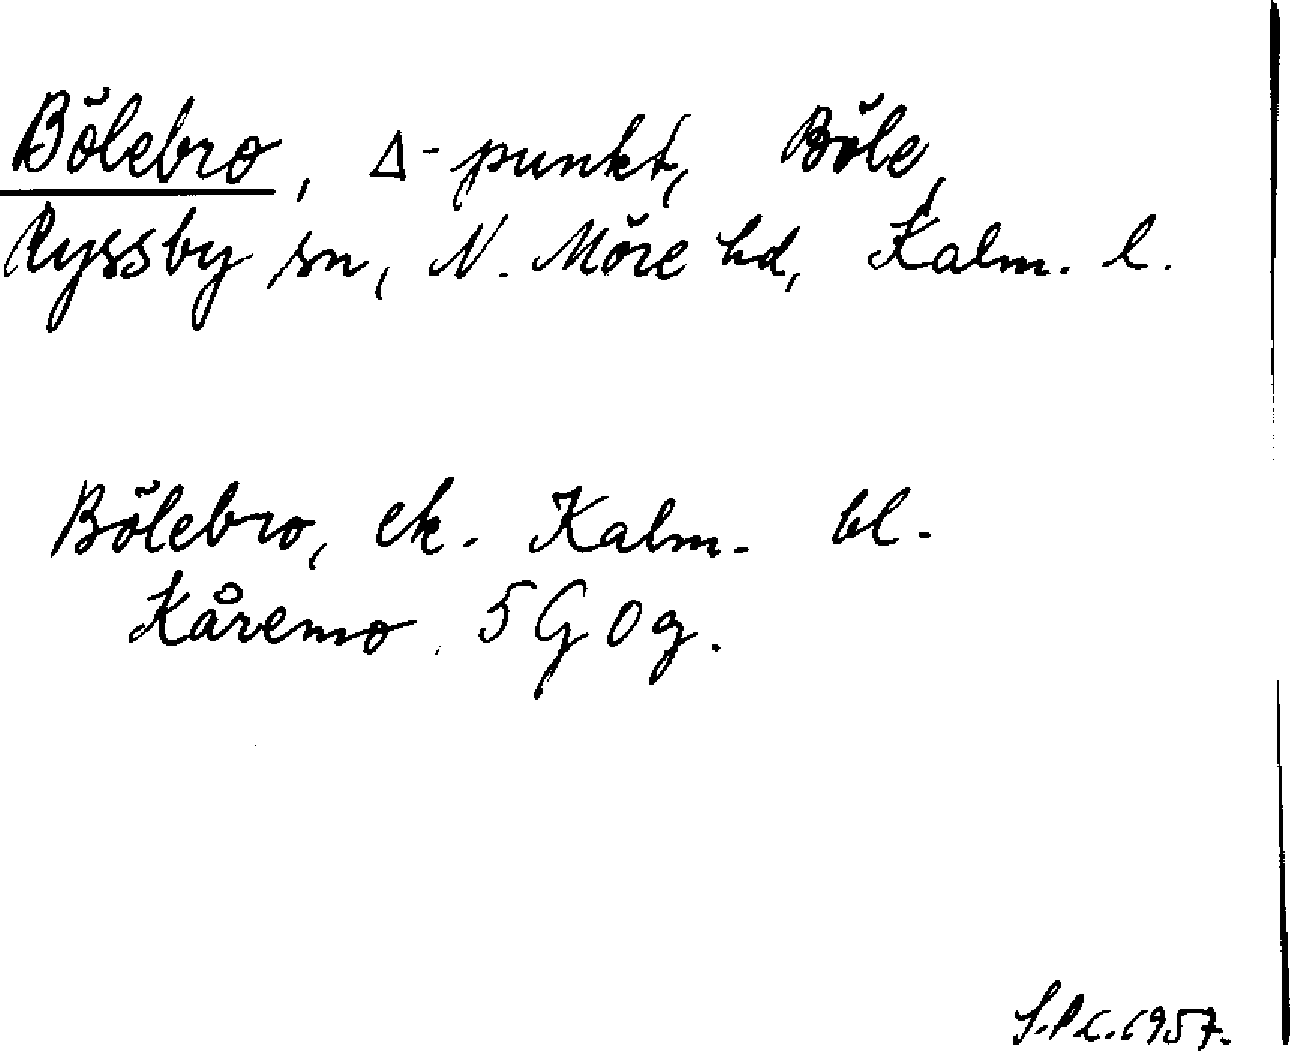 Bölebro, Δ-punkt, Böle,
Ryssby sn, N. Möre hd, Kalm. l.
Bölebro, ek. Kalm. bl.
Kåremo. 5 G 0 g.
1957.